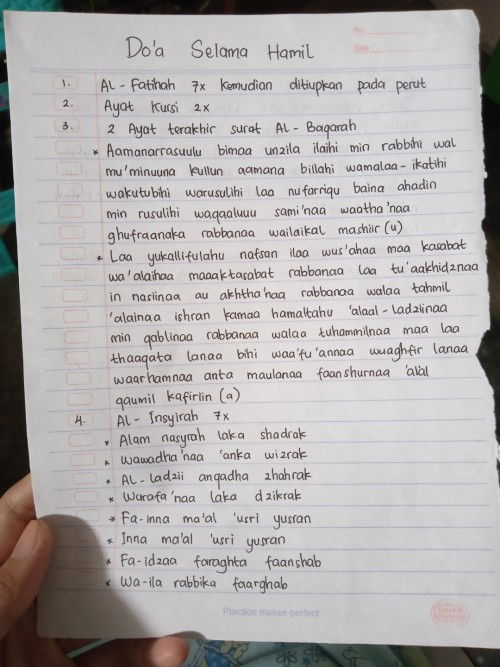 No:
Date:
Do'a Selama Hamil
1. AL-Fatihah 7x kemudian ditiupkan pada perut
2. Ayat Kursi 2x
3. 2 Ayat terakhir surat AL-Baqarah
* Aamanarrasuulu bimaa unzila ilaihi min rabbihi wal
mu'minuuna kullun aamana billahi wamalaa-ikatihi
wakutubihi warusulihi laa nufarriqu baina ahadin
min rusulihi waqaaluuu sami'naa waatha'naa
ghufraanaka rabbanaa wailaikal mashiir (u)
* Laa yukallifulahu nafsan ilaa wus'ahaa maa kasabat
wa'alaihaa maaaktasabat rabbanaa laa tu'aakhidznaa
in nasiinaa au akhtha'naa rabbanaa walaa tahmil
'alainaa ishran kamaa hamaltahu 'alaal-ladziinaa
min qablinaa rabbanaa walaa tuhammilnaa maa laa
thaaqata lanaa bihi waa'fu'annaa wuaghfir lanaa
waarhamnaa anta maulanaa faanshurnaa 'alal
qaumil kafirlin (a)
4. AL-Insyirah 7x
* Alam nasyrah laka shadrak
* Wawadha'naa 'anka wizrak
* AL-ladzii anqadha zhahrak
* Warafa'naa laka dzikrak
* Fa-inna ma'al 'usri yusran
* Inna ma'al 'usri yusran
* Fa-idzaa faraghta faanshab
* Wa-ila rabbika faarghab
Practice makes perfect
SINAR DUNIA